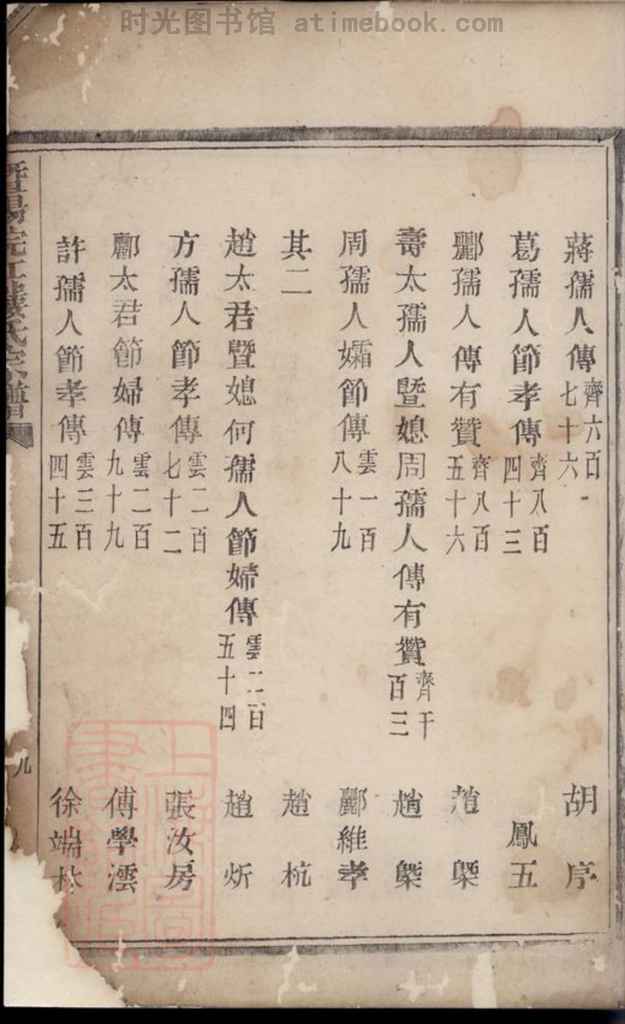 时光图书馆 atimebook.com
蔣孺人傳 齊六百七十六 胡序
葛孺人節孝傳 齊八百四十三 鳳五
酈孺人傳有贊 齊八百五十六 趙槩
壽太孺人暨媳周孺人傳有贊 齊千百三 趙槩
周孺人孀節傳 雲一百八十九 酈維孝
其二 趙杭
趙太君暨媳何孺人節婦傳 雲二百五十四 趙炘
方孺人節孝傳 雲二百七十二 張汝房
酈太君節婦傳 雲二百九十九 傅學澐
許孺人節孝傳 雲三百四十五 徐端
暨陽 江 氏宗譜
九